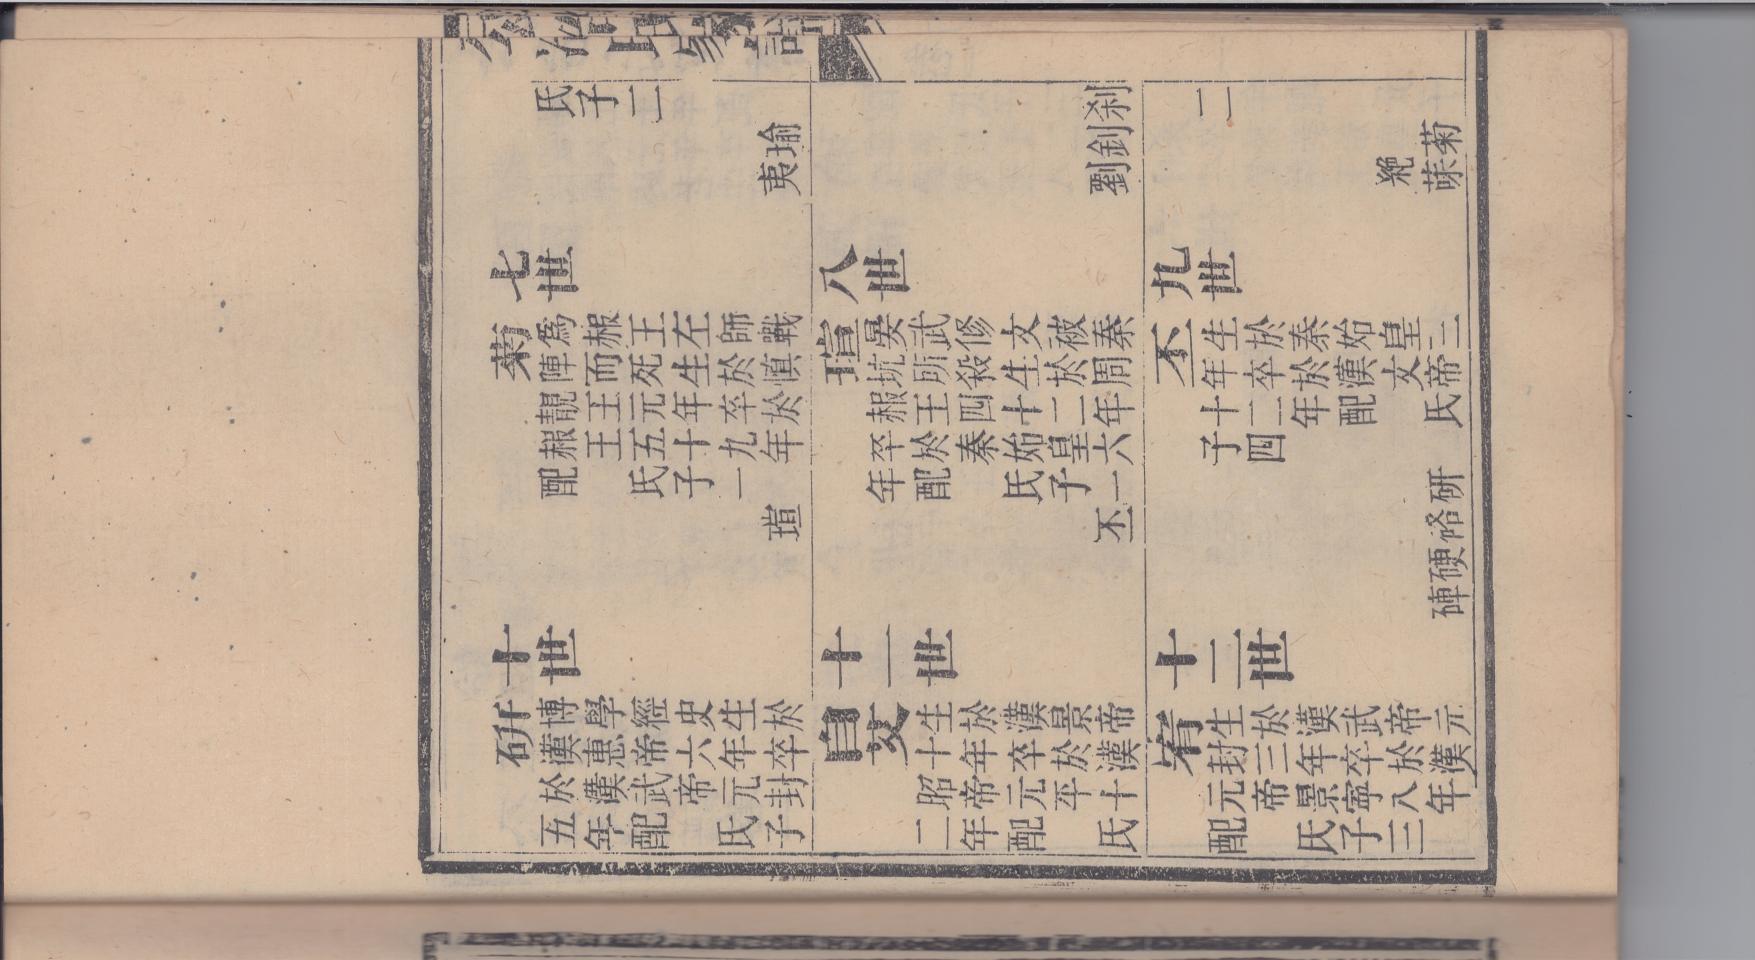 氏子二
瑜
夷
七世
菊
為赧王左師戰
陣而死生於慎
靚王元年卒於
赧王五十九年
配氏子一
瑄
刹
釗
劉
八世
瑄
晏武修文被秦
坑所殺生於周
赧王四十二年
卒於秦始皇六
年配氏子一
丕
二
菊
菋絶
九世
丕
生於秦始皇三
十年卒於漢文帝
十二年配氏
子四
研
硌
硬
硨
十世
研
博學經史生於
漢惠帝六年卒
於漢武帝元封
五年配氏子
十一世
生於漢景帝
十年卒於漢
昭帝元平十
二年配氏
十二世
生於漢武帝元
封三年卒於漢
元帝景寧八年
配氏子三